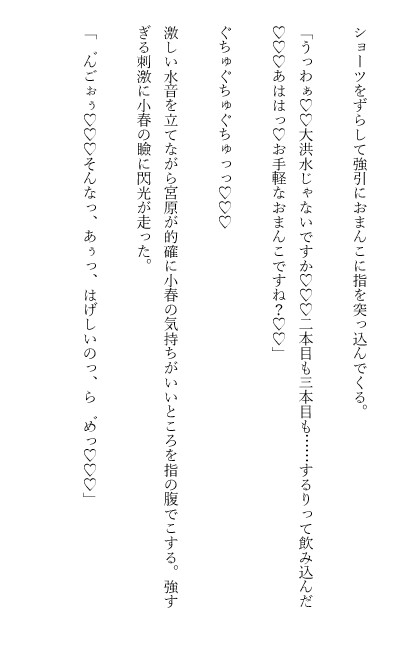 ショーツをずらして強引におまんこに指を突っ込んでくる。
「うっわぁ♡♡大洪水じゃないですか♡♡♡二本目も三本目も……するりって飲み込んだ
♡♡♡あははっ♡お手軽なおまんこですね？♡♡」
ぐちゅぐちゅぐちゅっっ♡♡♡
激しい水音を立てながら宮原が的確に小春の気持ちがいいところを指の腹でこする。強す
ぎる刺激に小春の瞼に閃光が走った。
「ん゛ごぉぅ♡♡♡そんなっ、あぅっ、はげしいのっ、ら゛めっ♡♡♡」